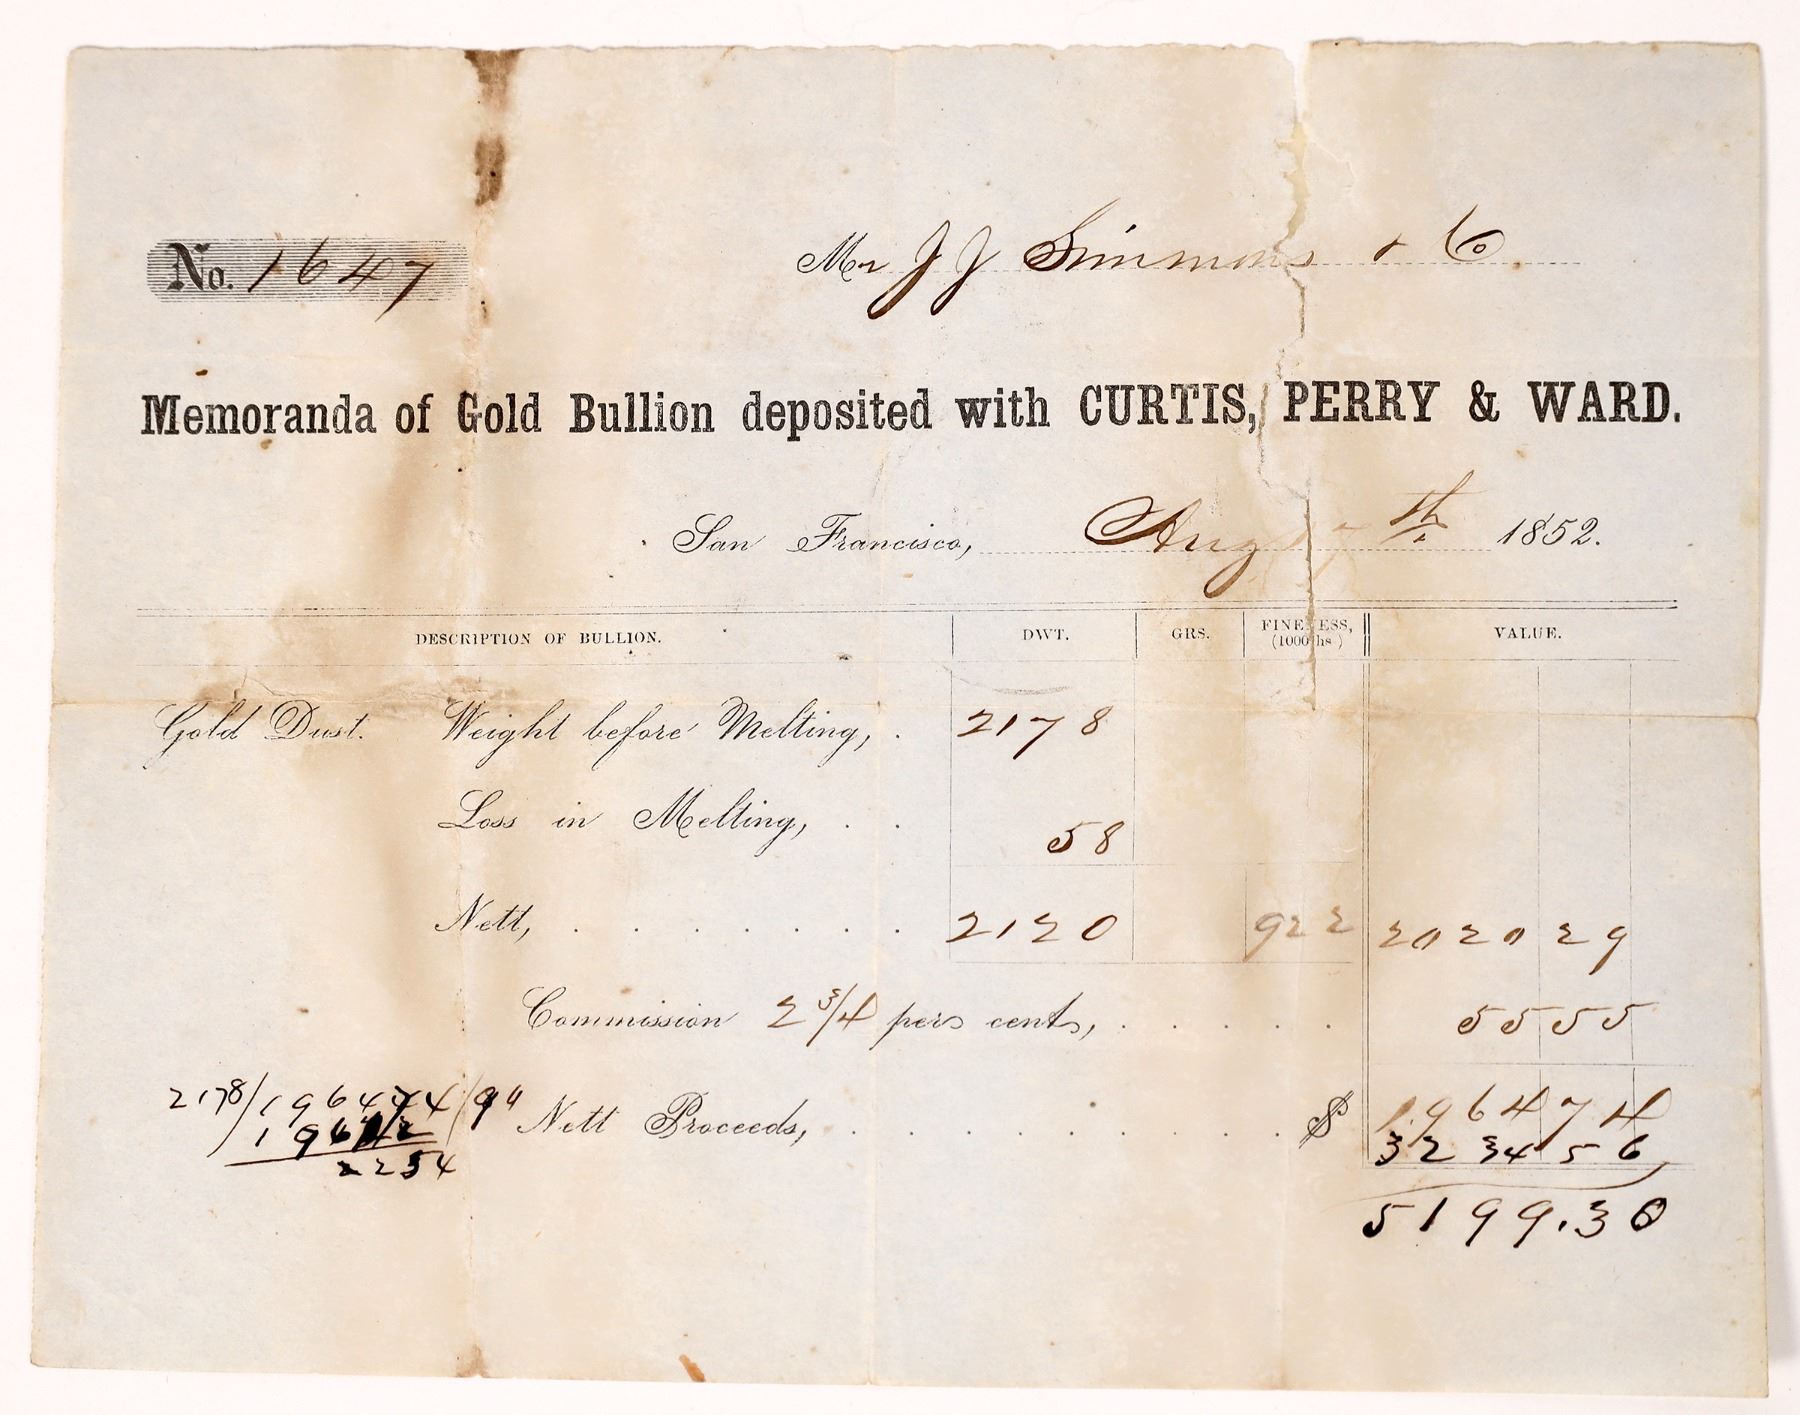 No. 1647
Mr J J Simmons & Co.
Memoranda of Gold Bullion deposited with CURTIS, PERRY & WARD.
San Francisco, Aug 17th 1852.
DESCRIPTION OF BULLION. DWT. GRS. FINENESS, (1000ths) VALUE.
Gold Dust. Weight before Melting, . 2178
Loss in Melting, . . 58
Nett, . . . . . . . . 2120 922 2020 29
Commission 2 3/4 per cent, . . . . . 55 55
Nett Proceeds, . . . . . . . . . . $ 1964 74
3234 56
5199.30
2178/196474/9
2254